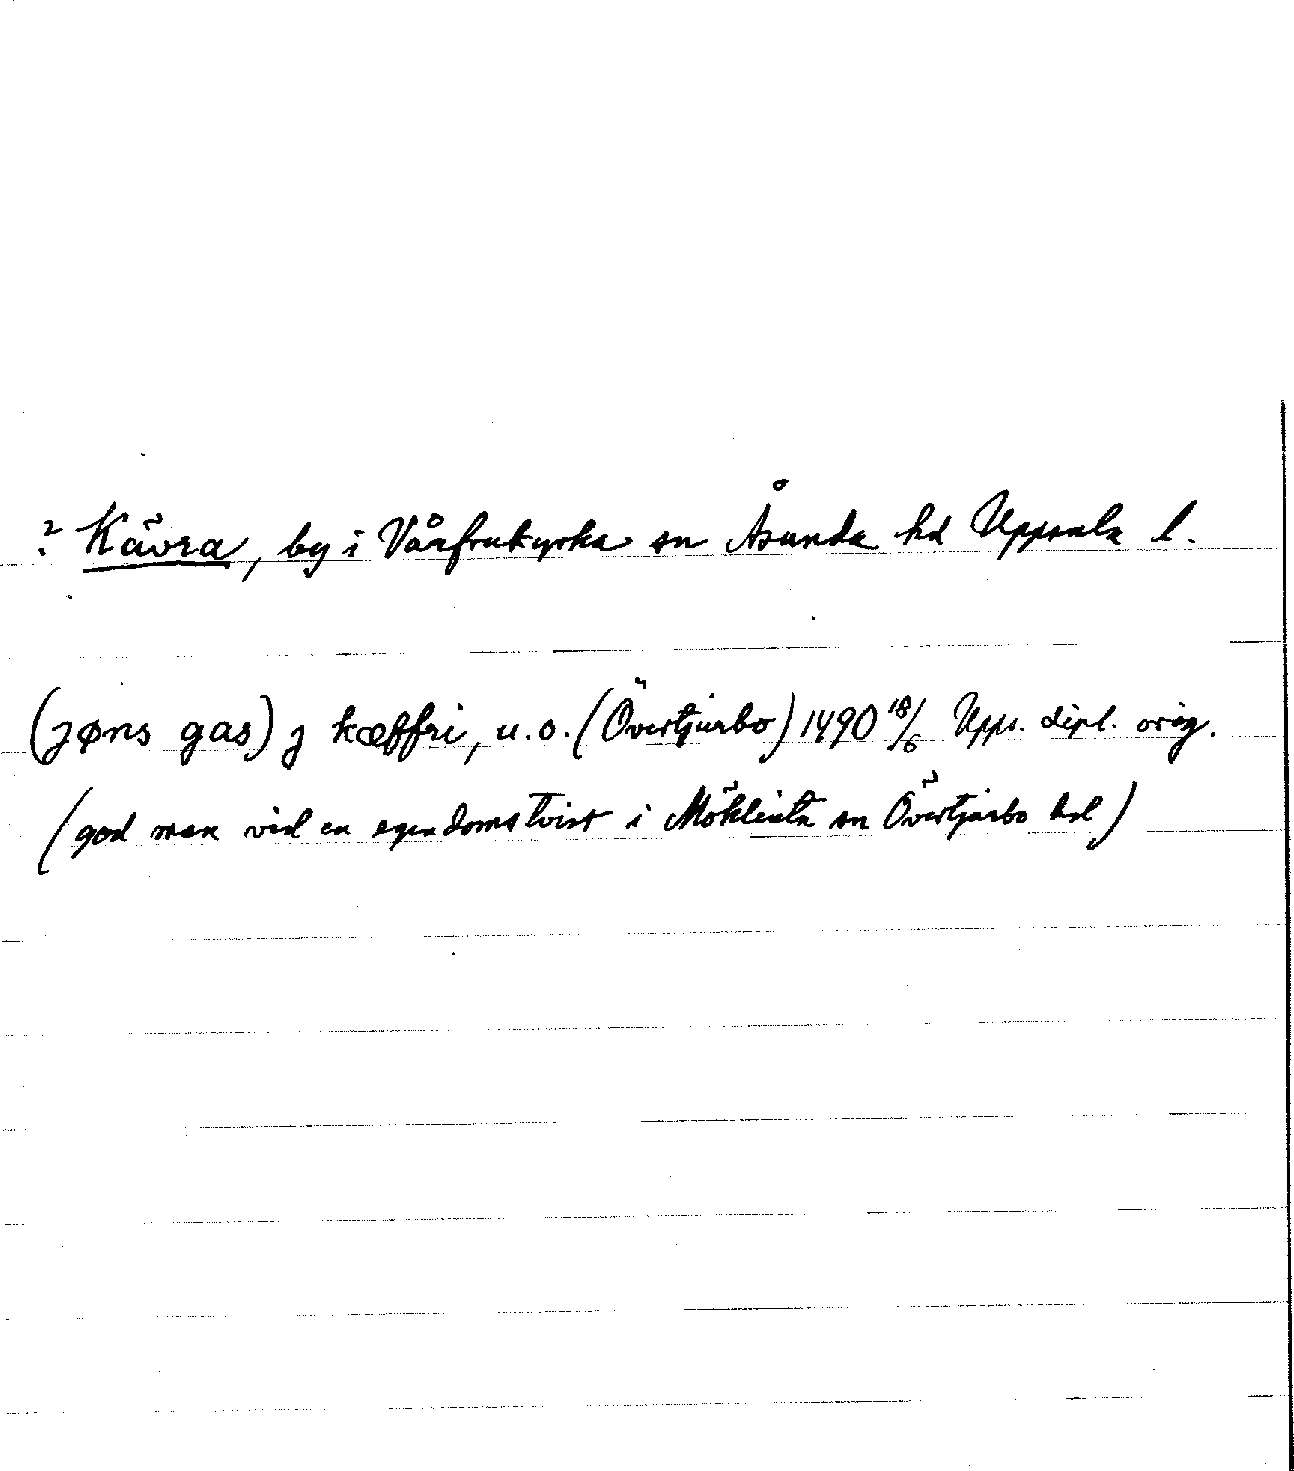 ? Kävra, by i Vårfrukyrka sn Åsunda hd Uppsala l.
(jøns gas) j kæffri, u.o. (Övertjurbo) 1490 18/6 Upps. dipl. orig.
(god man vid en egendomstvist i Möklinta sn Övertjurbo hd)